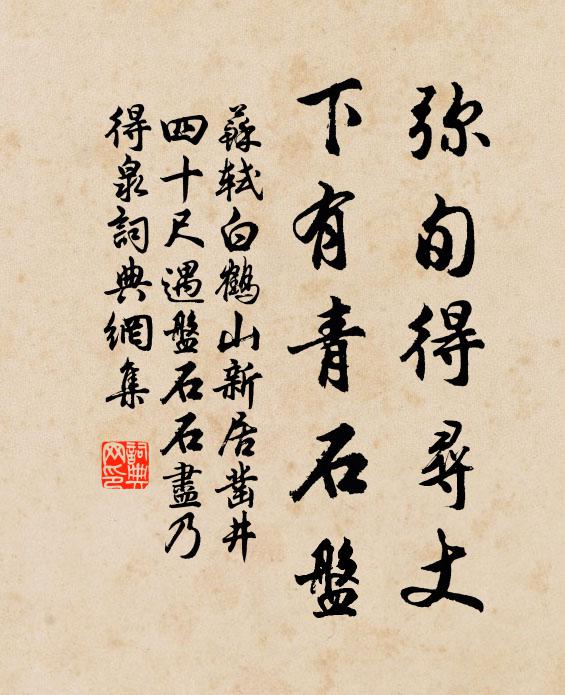 弥旬得尋丈
下有青石盤
蘇軾白鶴山新居鑿井
四十尺遇盤石石盡乃
得泉詞典網集
詞典
网印